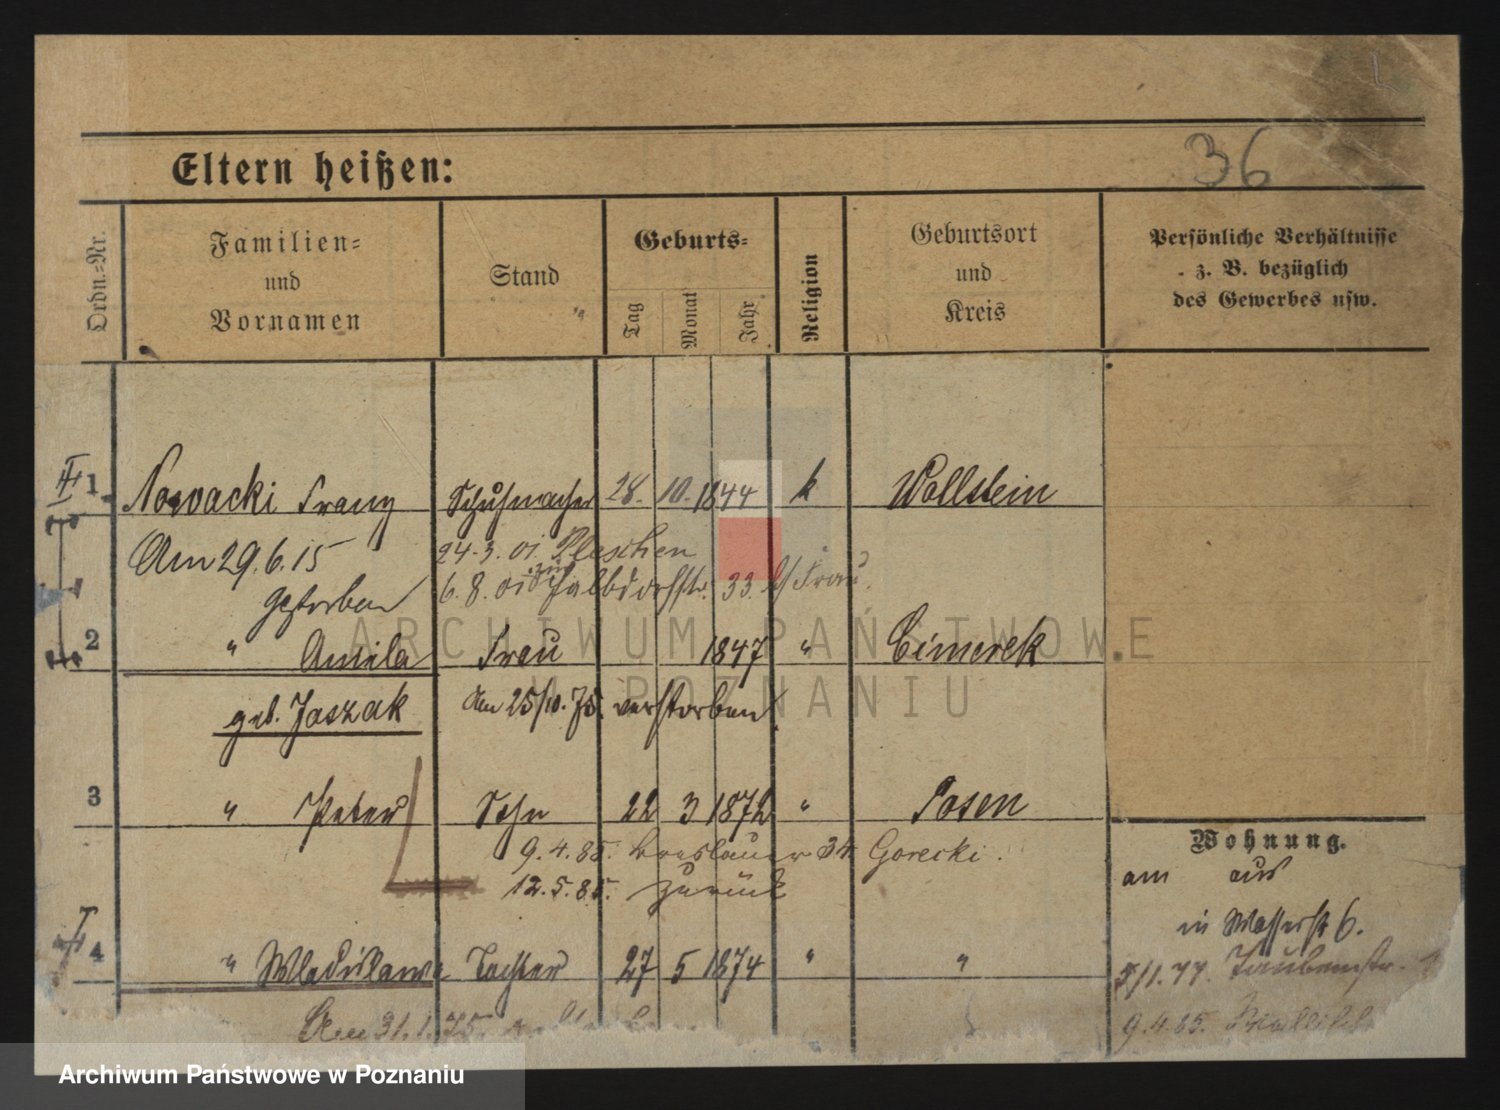 36
Eltern heißen:
Ordn.=Nr.
Familien=
und
Vornamen
Stand
Geburts=
Tag
Monat
Jahr
Religion
Geburtsort
und
Kreis
Persönliche Verhältnisse
z. B. bezüglich
des Gewerbes usw.
1 Nowacki Franz Schuhmacher 28. 10. 1844 k Wollstein
Am 29.6.15 24.3.01. Pleschen
gestorben 6.8.01 33. Frau
2 " Amila Frau 1847 " Cimerek
geb. Jaszak Am 25/10.75. verstorben
3 " Peter Sohn 22 3 1872 " Posen
9.4.85. Breslauer 34 Gorecki.
12.5.85. zurück
Wohnung.
am aus
in Wasserst 6.
4 " Wladislawa Tochter 27 5 1874 " "
5/1.77. Taubenstr.
Am 31.1.75.
9.4.85.
ARCHIWUM PAŃSTWOWE
W POZNANIU
Archiwum Państwowe w Poznaniu